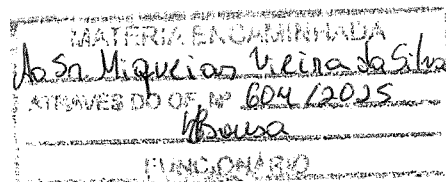 MATÉRIA ENCAMINHADA
Ao Sr Miqueias Vieira da Silva
ATRAVÉS DO OF. Nº 604/2025
FUNCIONÁRIO